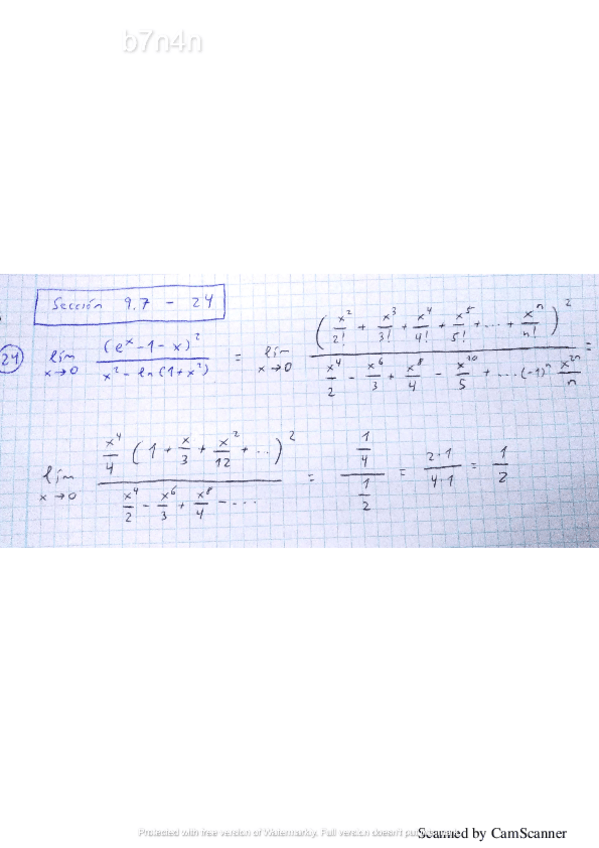 b7n4n
Sección 9.7 - 24
24) lím x→0 (eˣ-1-x)² / (x² - ln(1+x²)) = lím x→0 (x²/2! + x³/3! + x⁴/4! + x⁵/5! + ... + xⁿ/n!)² / (x⁴/2 - x⁶/3 + x⁸/4 - x¹⁰/5 + ...(-1)ⁿ x²ⁿ/n) =
lím x→0 x⁴/4 (1 + x/3 + x²/12 + ...)² / (x⁴/2 - x⁶/3 + x⁸/4 - ...) = (1/4)/(1/2) = 2·1/4·1 = 1/2
Protected with free version of Watermarkly. Full version doesn't put
Scanned by CamScanner